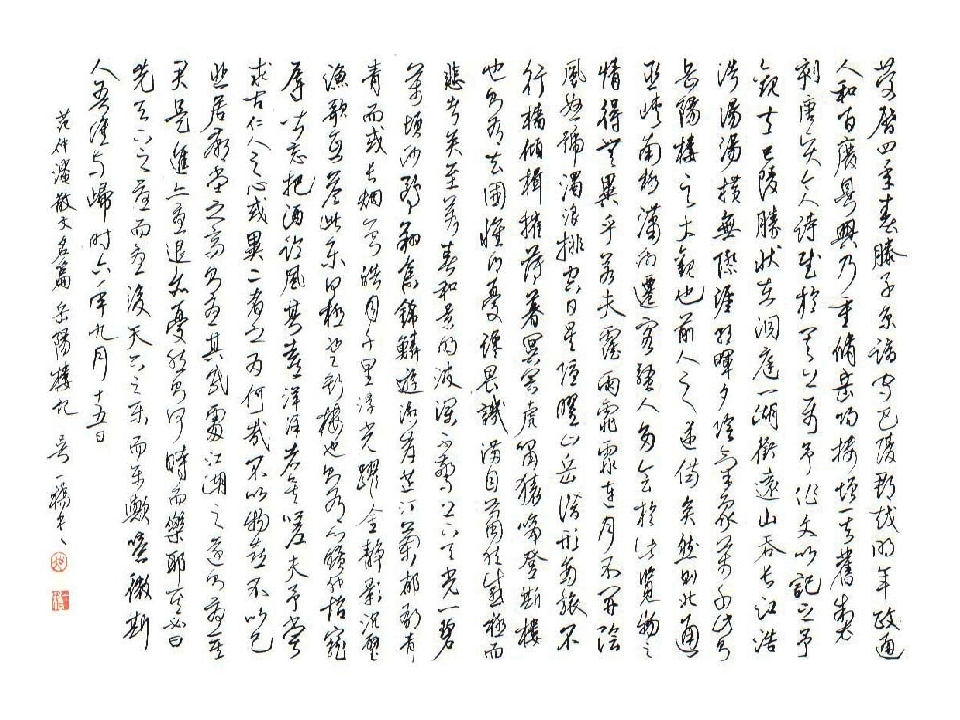 慶曆四年春滕子京謫守巴陵郡越明年政通
人和百廢具興乃重修岳陽樓增其舊制
刻唐賢今人詩賦於其上屬予作文以記之予
觀夫巴陵勝狀在洞庭一湖銜遠山吞長江浩
浩湯湯橫無際涯朝暉夕陰氣象萬千此則
岳陽樓之大觀也前人之述備矣然則北通
巫峽南極瀟湘遷客騷人多會於此覽物之
情得無異乎若夫霪雨霏霏連月不開陰
風怒號濁浪排空日星隱曜山岳潛形商旅不
行檣傾楫摧薄暮冥冥虎嘯猿啼登斯樓
也則有去國懷鄉憂讒畏譏滿目蕭然感極而
悲者矣至若春和景明波瀾不驚上下天光一碧
萬頃沙鷗翔集錦鱗遊泳岸芷汀蘭郁郁青
青而或長煙一空皓月千里浮光躍金靜影沉璧
漁歌互答此樂何極登斯樓也則有心曠神怡寵
辱皆忘把酒臨風其喜洋洋者矣嗟夫予嘗
求古仁人之心或異二者之為何哉不以物喜不以己
悲居廟堂之高則憂其民處江湖之遠則憂其
君是進亦憂退亦憂然則何時而樂耶其必曰
先天下之憂而憂後天下之樂而樂歟噫微斯
人吾誰與歸時六年九月十五日
范仲淹散文名篇 岳陽樓記